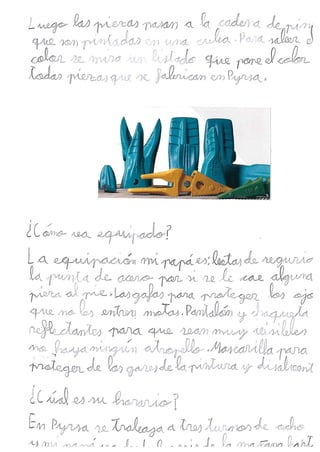 Luego las piezas pasan a la cadena de pin
que son pintadas en una cuba. Para saber
color se mira un listado que pone el color
todas piezas que se fabrican en Pyrsa.
¿Cómo va equipado?
La equipación mi papá es: botas de
la punta de acero por si se le cae alguna
pieza al pie. Las gafas para proteger los ojo
que no les entren motas. Pantalón y chaqueta
reflectantes para que sean muy visibles
no haya ningún atropello. Mascarilla para
proteger de los gases de la pintura y
¿Cuál es su horario?
En Pyrsa se trabaja a tres turnos de ocho
y mi papá la mañana